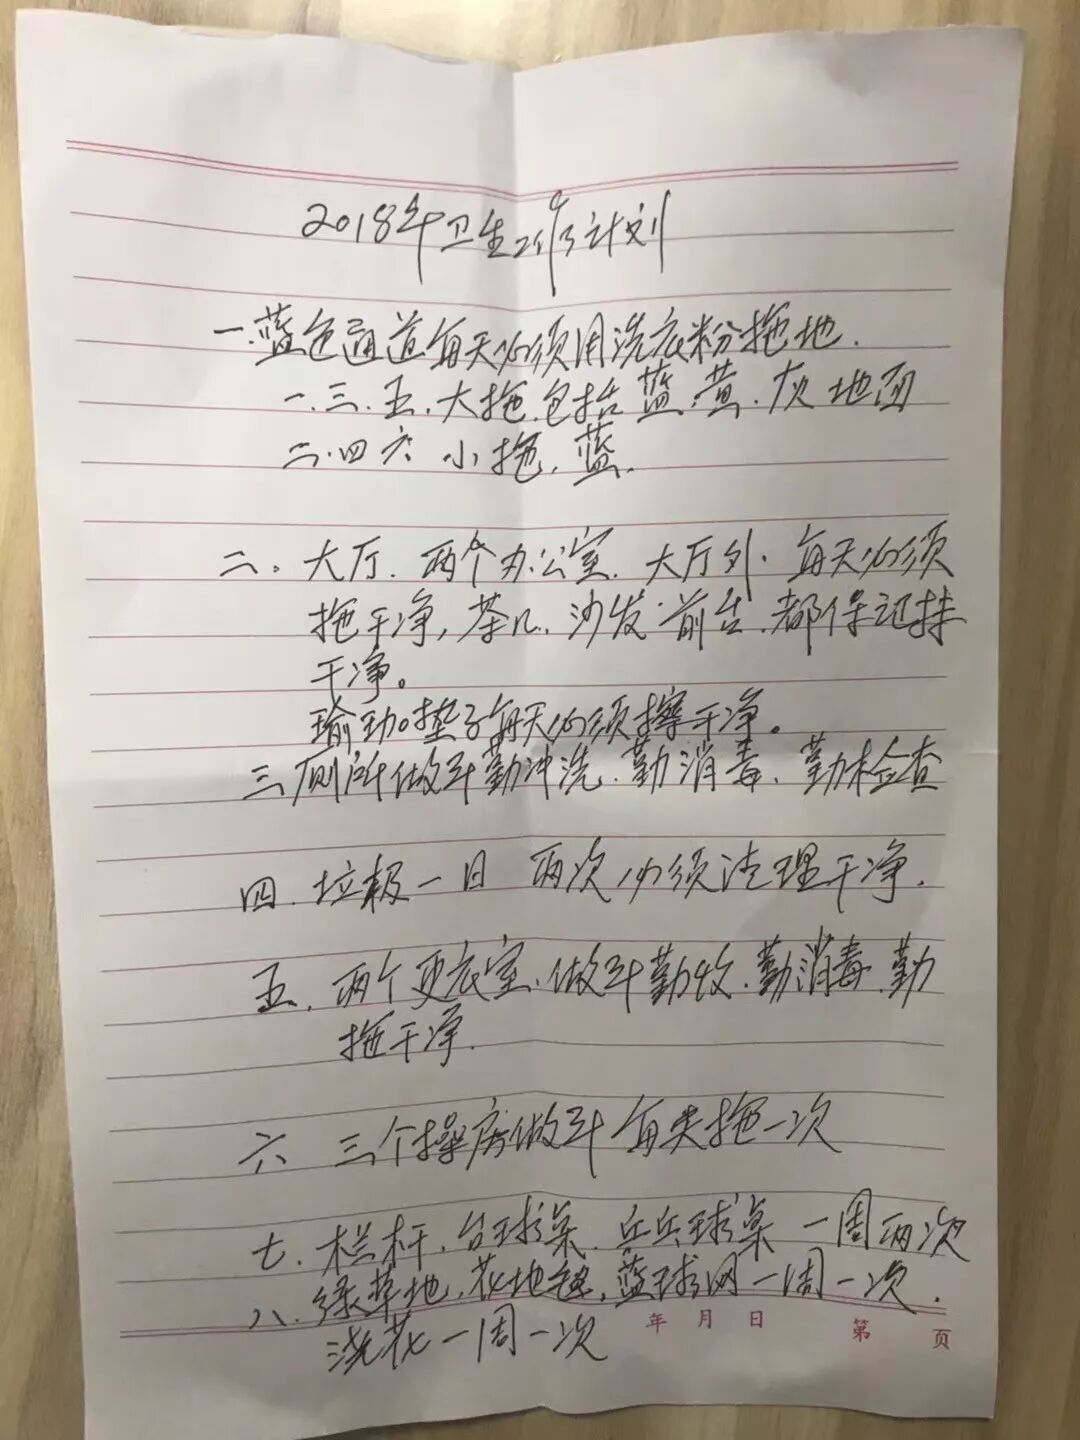 2018年卫生工作计划
一.蓝色通道每天必须用洗衣粉拖地.
一.三.五.大拖.包括蓝.黄.灰地面
二.四六 小拖.蓝.
二。大厅.两个办公室.大厅外.每天必须
拖干净,茶几.沙发.前台.都保证抹
干净。
瑜珈垫子每天必须擦干净。
三.厕所做到勤冲洗.勤消毒、勤检查
四.垃圾一日 两次必须清理干净.
五.两个更衣室.做到勤收.勤消毒.勤
拖干净.
六 三个操房做到 每天拖一次
七.栏杆.台球桌.乒乓球桌一周两次
八.绿草地.花地毯.蓝球网一周一次.
浇花一周一次
年 月 日 第 页